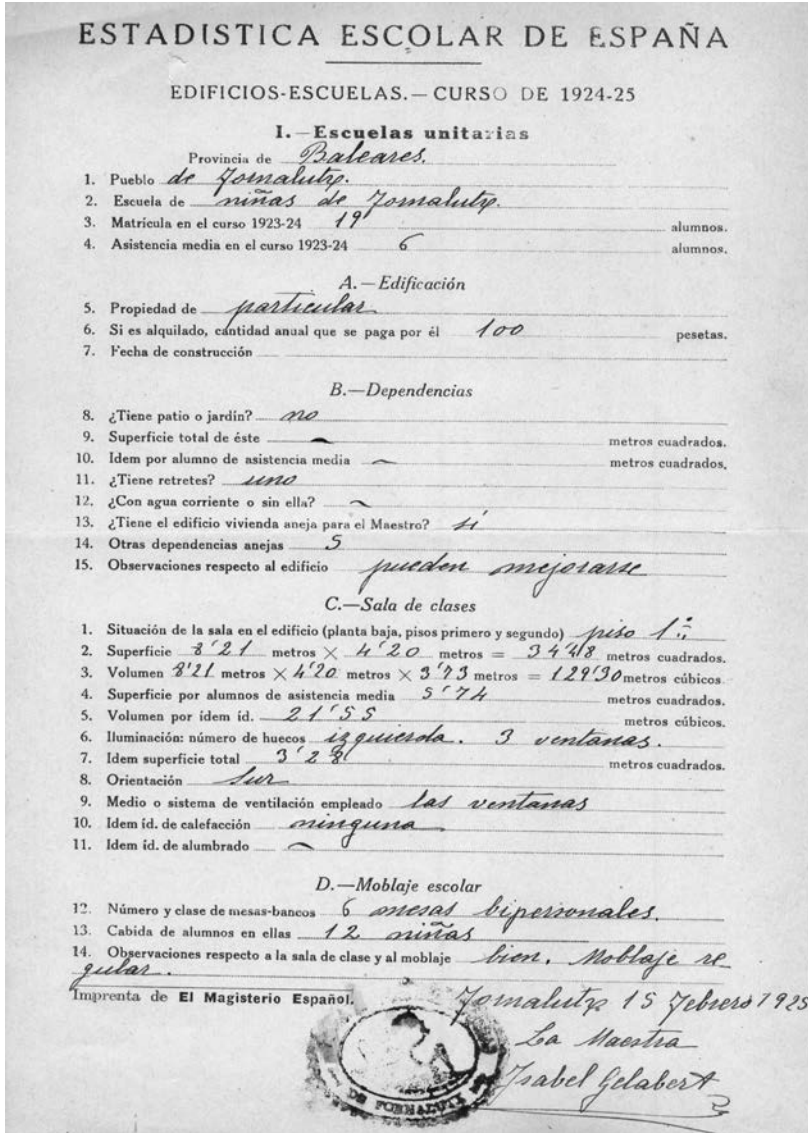 ESTADISTICA ESCOLAR DE ESPAÑA
EDIFICIOS-ESCUELAS.—CURSO DE 1924-25
I.—Escuelas unitarias
Provincia de Baleares.
1. Pueblo de Fornalutx.
2. Escuela de niñas de Fornalutx.
3. Matrícula en el curso 1923-24 19 alumnos.
4. Asistencia media en el curso 1923-24 6 alumnos.
A.—Edificación
5. Propiedad de particular
6. Si es alquilado, cantidad anual que se paga por él 100 pesetas.
7. Fecha de construcción
B.—Dependencias
8. ¿Tiene patio o jardín? no
9. Superficie total de éste — metros cuadrados.
10. Idem por alumno de asistencia media — metros cuadrados.
11. ¿Tiene retretes? uno
12. ¿Con agua corriente o sin ella? —
13. ¿Tiene el edificio vivienda aneja para el Maestro? sí
14. Otras dependencias anejas 5
15. Observaciones respecto al edificio pueden mejorarse
C.—Sala de clases
1. Situación de la sala en el edificio (planta baja, pisos primero y segundo) piso 1º
2. Superficie 8'21 metros × 4'20 metros = 34'48 metros cuadrados.
3. Volumen 8'21 metros × 4'20 metros × 3'73 metros = 129'30 metros cúbicos.
4. Superficie por alumnos de asistencia media 5'74 metros cuadrados.
5. Volumen por ídem íd. 21'55 metros cúbicos.
6. Iluminación: número de huecos izquierda. 3 ventanas.
7. Idem superficie total 3'28 metros cuadrados.
8. Orientación Sur
9. Medio o sistema de ventilación empleado las ventanas
10. Idem íd. de calefacción ninguna
11. Idem íd. de alumbrado —
D.—Moblaje escolar
12. Número y clase de mesas-bancos 6 mesas bipersonales.
13. Cabida de alumnos en ellas 12 niñas
14. Observaciones respecto a la sala de clase y al moblaje bien. Moblaje re
gular.
Imprenta de El Magisterio Español.
Fornalutx 15 Febrero 1925
La Maestra
Isabel Gelabert
DE FORNALUTX